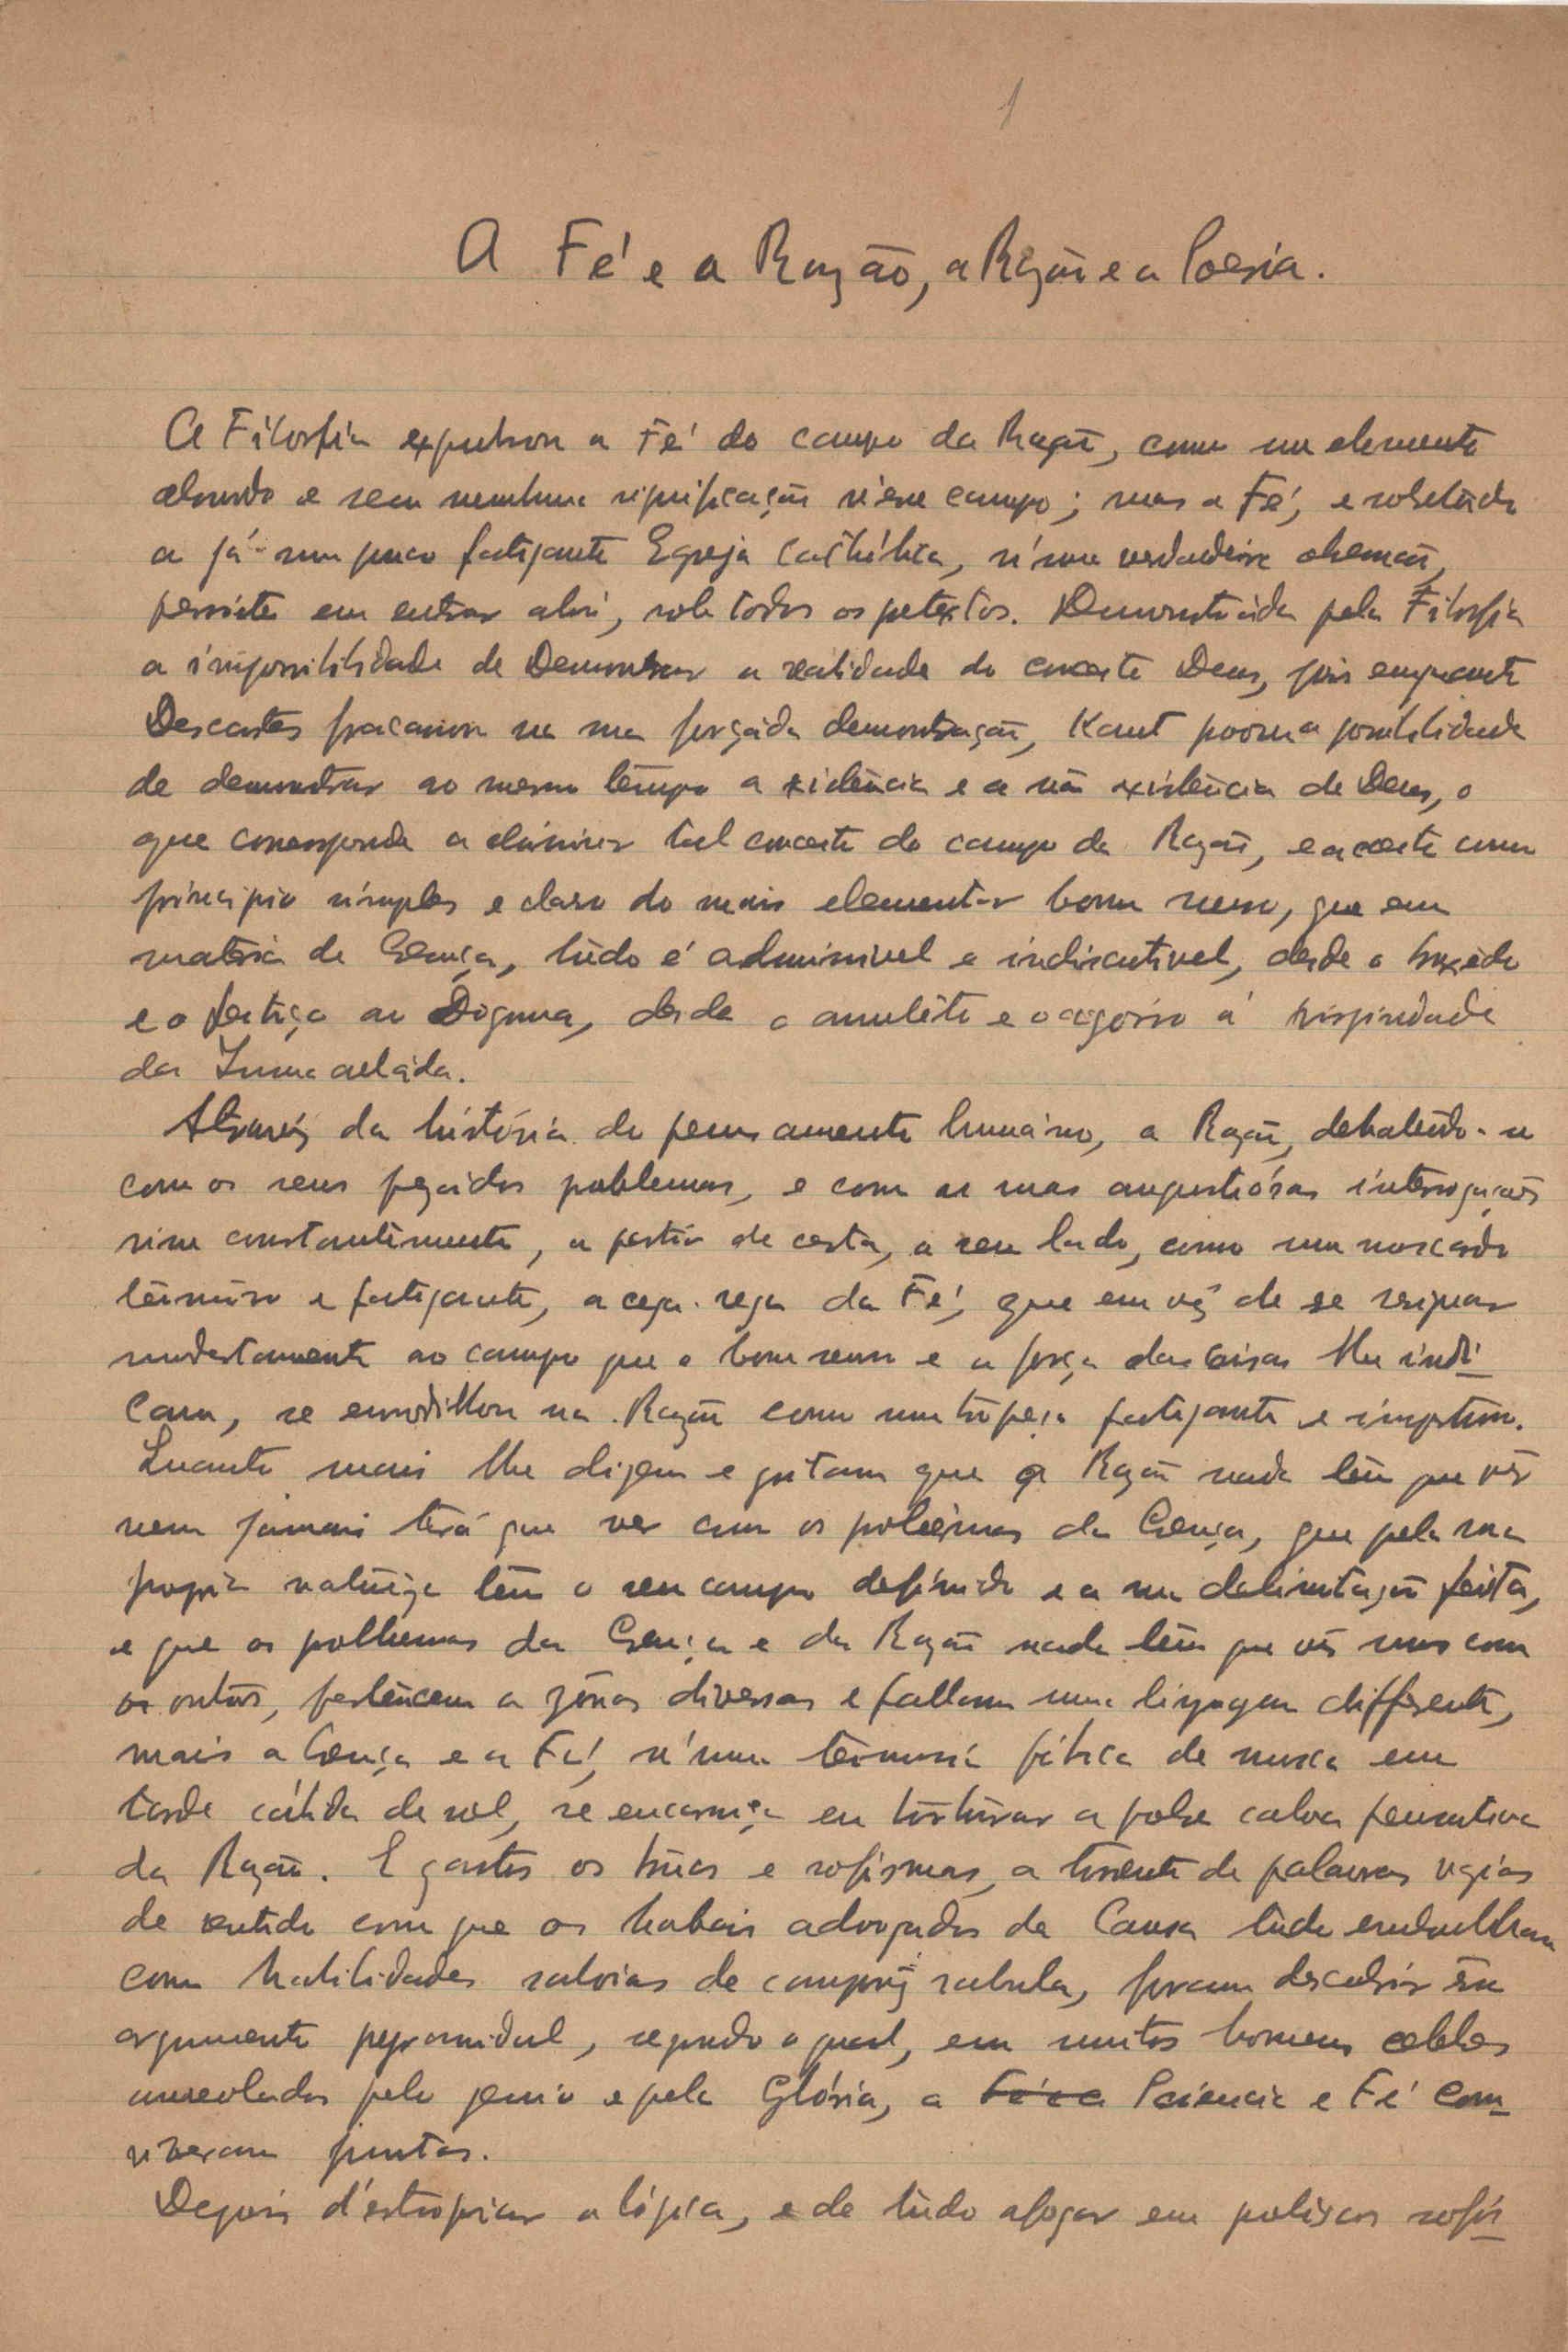 1
A Fé e a Razão, a Razão e a Poesia.
A Filosofia expulsou a Fé do campo da Razão, como um elemento
absurdo e sem nenhuma significação n'esse campo; mas a Fé, e sobretudo
a já um pouco fatigante Egreja Cathólica, n'uma verdadeira obsessão,
persiste em entrar ahi, sob todos os pretextos. Demonstrada pela Filosofia
a impossibilidade de Demonstrar a realidade do conceito Deus, pois enquanto
Descartes fracassou na sua forçada demonstração, Kant provou a possibilidade
de demonstrar ao mesmo tempo a existência e a não existência de Deus, o
que corresponde a eliminar tal conceito do campo da Razão, e acceite como
principio simples e claro do mais elementar bom senso, que em
matéria de Crença, tudo é admissivel e indiscutivel, desde o bruxêdo
e o feitiço ao Dogma, desde o amulêto e o agoiro á virgindade
da Immaculada.
Através da história do pensamento humano, a Razão, debatendo-se
com os seus pezados problemas, e com as suas angustiósas interrogações
sente constantemente, a partir de certa, a seu lado, como um moscardo
teimoso e fatigante, a cega-rega da Fé, que em vêz de se resignar
modestamente ao campo que o bom senso e a força das coisas lhe indi-
cam, se enrodilhou na Razão como uma trôpeça fatigante e importuna.
Quanto mais lhe dizem e gritam que a Razão nada têm que vêr
nem jamais terá que ver com os problêmas da Crença, que pela sua
propria naturêza têm o seu campo definido e a sua delimitação feita,
e que os problemas da Crença e da Razão nada têm que vêr uns com
os outros, pertencem a zônas diversas e fallam uma lingagem differente,
mais a Crença e a Fé, n'uma teimosia fisica de mosca em
tarde cálida de sol, se encarniça em tortúrar a pobre calva pensativa
da Razão. E gastos os truces e sofismas, a torrente de palavras vazias
de sentido com que os habeis advogados da Causa tudo embrulham
com habilidades saloias de camponez rabula, foram descobrir um
argumento pyramidal, segundo o qual, em muitos homens celebres
aureolados pelo genio e pela Glória, a Sciencia e Fé con-
viveram juntas.
Depois d'estropiar a lógica, e de tudo afogar em prolixos sofis-